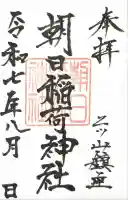 奉拝
二ツ山鎮座
朝日稲荷神社
令和七年八月 日